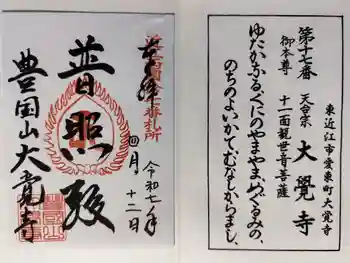 東近江市愛東町大覚寺
第十七番 天台宗 大覺寺
御本尊 十一面観世音菩薩
ゆたかなる、くにのやまやま、めぐるみの、
のちのよいかで、むなしからまし、
奉拝
令和七年
四月十二日
普照殿
豊国山大覚寺